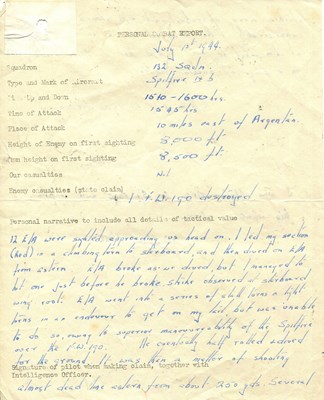 PERSONAL COMBAT REPORT.
July 1st 1944.
Squadron 132 Sqdn.
Type and Mark of Aircraft Spitfire IX B
Time Up and Down 1510 - 1600 hrs.
Time of Attack 1545 hrs.
Place of Attack 10 miles east of Argentan.
Height of Enemy on first sighting 8,000 ft.
Own height on first sighting 8,500 ft.
Our casualties Nil
Enemy casualties (state claim) 1 F.W. 190 destroyed
Personal narrative to include all details of tactical value
12 E/A were sighted approaching us head on. I led my section
(Red) in a climbing turn to starboard, and then dived on E/A
from astern. E/A broke as we dived, but I managed to
hit one just before he broke strike observed on starboard
wing root. E/A went into a series of steep turns & tight
turns in an endeavour to get on my tail, but was unable
to do so, owing to superior manoeuvrability of the Spitfire
over the F.W. 190. He eventually half rolled & dived
for the ground. It was then a matter of shooting
Signature of pilot when making claim, together with
Intelligence Officer.
almost dead line astern from about 250 yds. Several